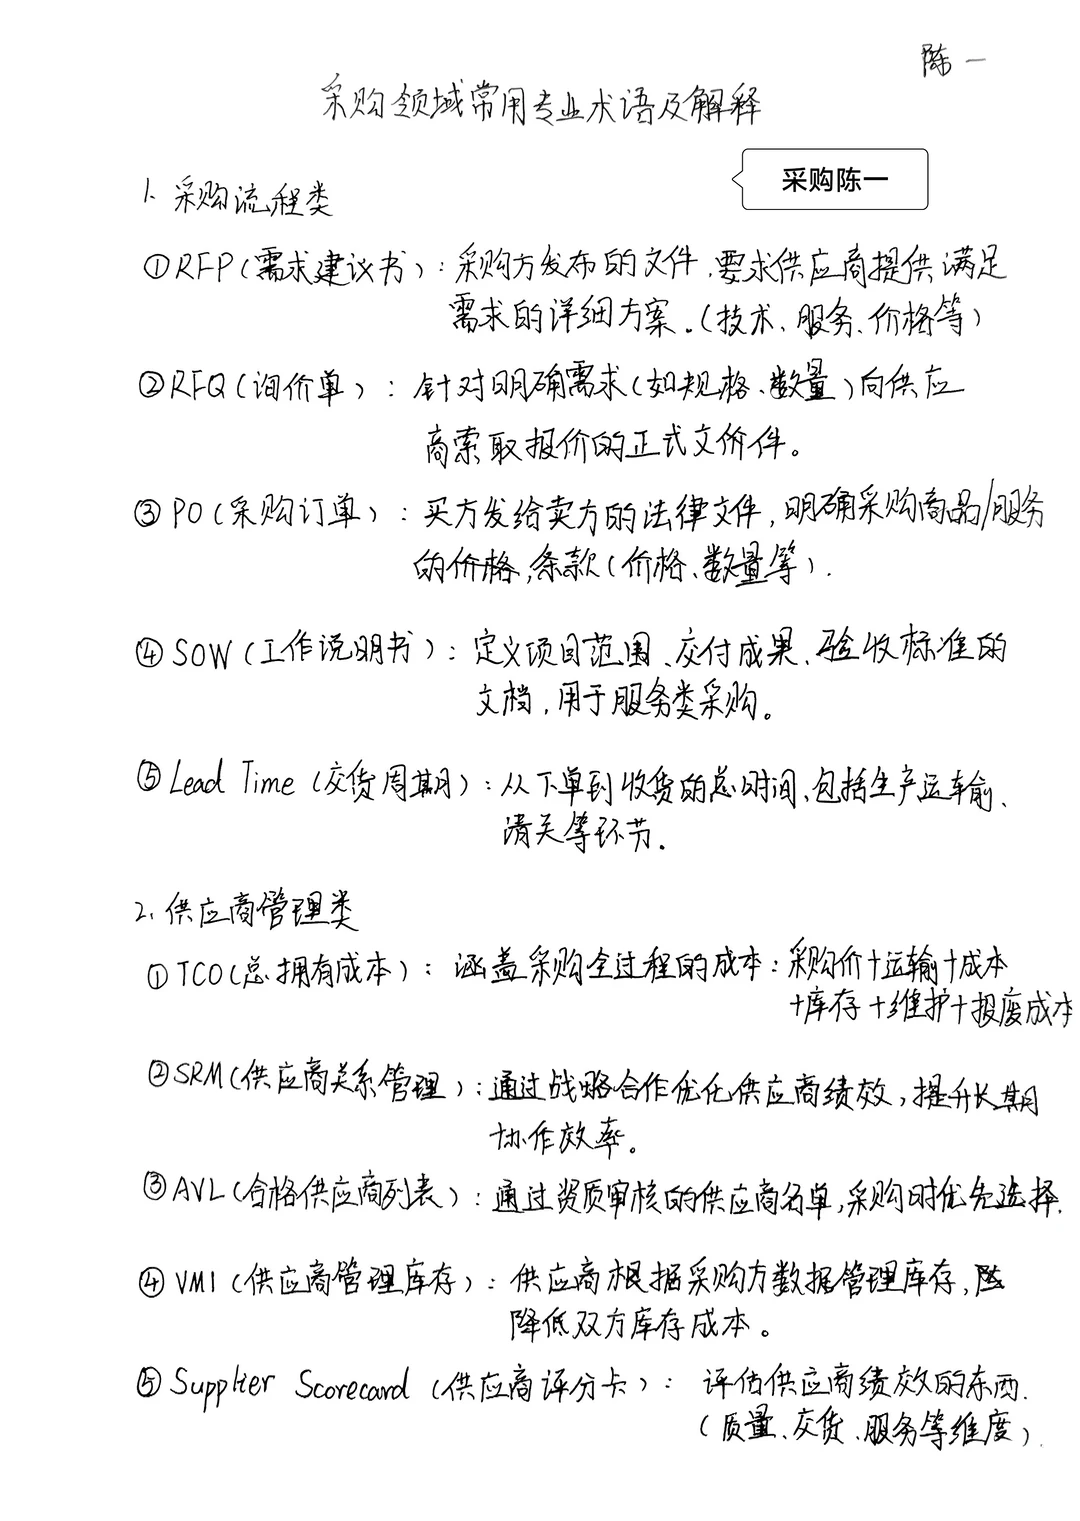 陈一
采购领域常用专业术语及解释
采购陈一
1. 采购流程类
①RFP(需求建议书)：采购方发布的文件,要求供应商提供满足
需求的详细方案.(技术、服务、价格等)
②RFQ(询价单)：针对明确需求(如规格、数量)向供应
商索取报价的正式文价件。
③PO(采购订单)：买方发给卖方的法律文件,明确采购商品/服务
的价格,条款(价格、数量等).
④SOW(工作说明书)：定义项目范围、交付成果、验收标准的
文档,用于服务类采购。
⑤Lead Time(交货周期)：从下单到收货的总时间、包括生产运输、
清关等环节.
2. 供应商管理类
①TCO(总拥有成本)：涵盖采购全过程的成本：采购价+运输+成本
+库存+维护+报废成本
②SRM(供应商关系管理)：通过战略合作优化供应商绩效,提升长期
协作效率。
③AVL(合格供应商列表)：通过资质审核的供应商名单,采购时优先选择.
④VMI(供应商管理库存)：供应商根据采购方数据管理库存,
降低双方库存成本。
⑤Supplier Scorecard(供应商评分卡)：评估供应商绩效的东西.
(质量、交货、服务等维度).